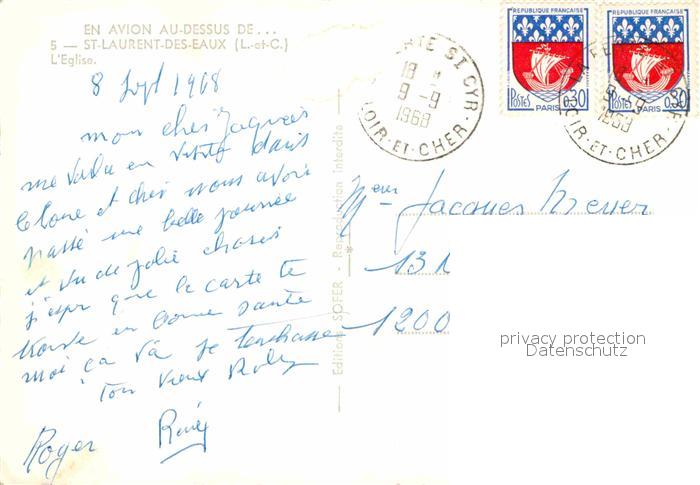 EN AVION AU-DESSUS DE...
5 — ST-LAURENT-DES-EAUX (L.-et-C.)
L'Eglise.
8 Sept 1968
mon cher Jacques
me en visite dans
le Loire et cher nous avons
passé une belle journée
et vu de jolie choses
j'espr que la carte te
trouve en bonne santé
moi ça va je
ton vieux
Roger René
Editions SOFER - Reproduction interdite
LA FERTE ST CYR
18 H
9-9
1968
LOIR-ET-CHER
REPUBLIQUE FRANÇAISE
POSTES 0,30
PARIS
REPUBLIQUE FRANÇAISE
POSTES 0,30
PARIS
LA FERTE
9-9
1968
LOIR-ET-CHER
Jacques
131
1200
privacy protection
Datenschutz